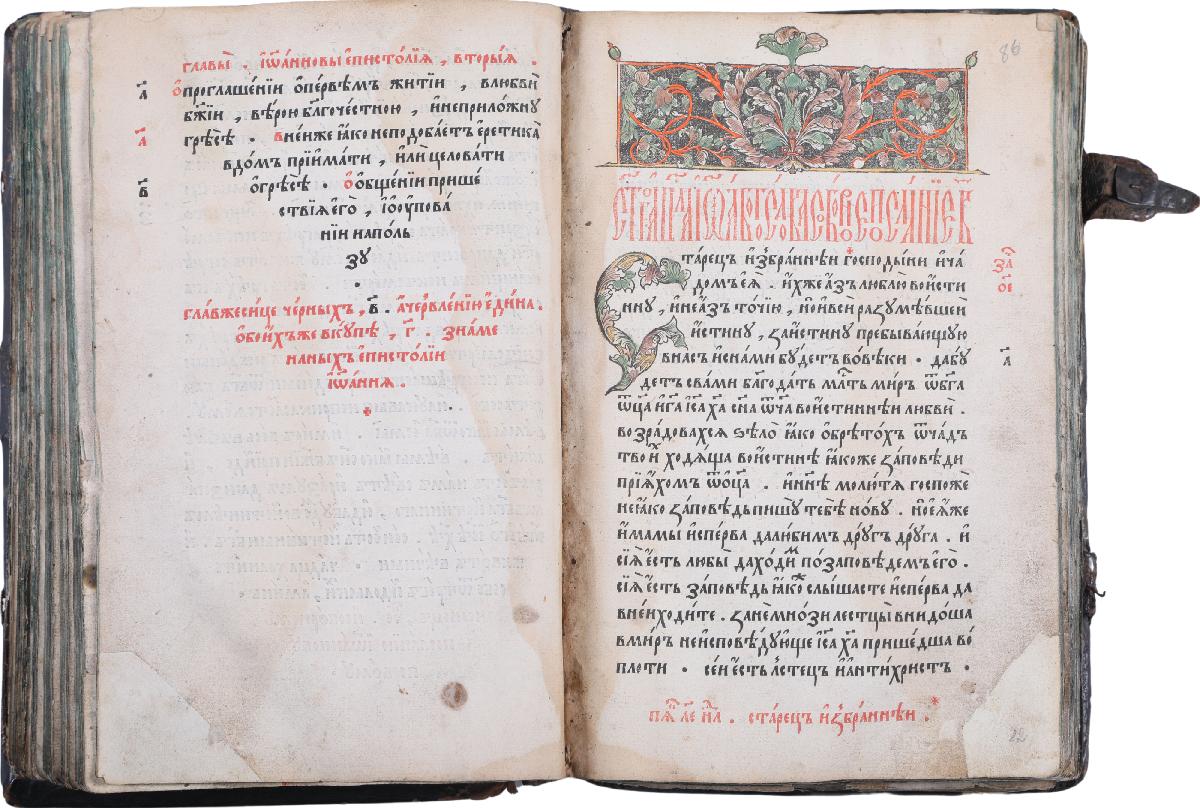 главы҆ . і҆ѡа́нновы є҆писто́лїѧ , вторы́ѧ .
а҃
ѡ҆проглаше́нїи ѡ҆пе́рвѣмъ житїи , влюбви̂
бж҃їи , вѣ́рою благоче́стною , и҆неприло́жну
а҃
грѣ́сѣ . вне́иже ꙗ҆́ко неподоба́етъ є҆ретика̀
вдо́мъ прїима́ти , и҆лѝ целова́ти
в҃
ѡ҆грѣ́сѣ . Ѻ҆ѻ҆бще́нїи прише́
ствїѧ є҆го̀ , і҆ѻ҆упова́
нїи напо́ль
зу
главжесице че́рныхъ , в҃ . а҆черве́нїю є҆ди́на .
ѻ҆бои́хъже вкꙋ́пѣ , г҃ . зна́ме
наныхъ є҆писто́лїи
і҆ѡа́ннїѧ .
86
та́рецъ и҆збра́ннѣи госпо́дыни и҆ча́
за
ое
домъ є҆ѧ̀ . и҆́хже а҆́зъ люблю̀ вои҆́сти
ину , и҆неа҆́зъ то́чїю , но̀и҆всѝ разꙋмѣ́вшеи
и҆́стинꙋ , заи҆́стинꙋ пребыва́ющую
а҃
внасъ и҆снами бꙋ́детъ вовѣ́ки . да́бꙋ
детъ сва́ми благода́ть мл҃ть миръ ѿбг҃а
ѿц҃а и҆г҃а і҆с҃а х҃а сн҃а ѿч҃а вои҆́стиннѣи любвѝ .
возра́довахсѧ ѕѣлѡ̀ ꙗ҆́ко ѻ҆брѣто́хъ ѿча́дъ
твои҆́ ходѧ́ща вои҆́стинѣ ꙗ҆́коже за́повѣди
прїѧ́хомъ ѿѻ҆ц҃а . и҆нн҃ѣ молю́тѧ госпожѐ
неꙗ҆́ко за́повѣдь пишꙋ̀ тебѣ̀ но́вꙋ . но̀ю҆́же
и҆́мамы и҆спе́рва далю́бимъ дрꙋ́гъ дрꙋ́га . и҆
сїѧ̀ є҆́сть любы̀ дахо́димъ позаповѣ́демъ є҆го̀ .
сїѧ̀ є҆́сть за́повѣдь ꙗ҆́кѻ слы́шасте и҆спе́рва да
вне́и хо́дите . занѐмно́зи лестцы̀ внидо́ша
вми́ръ неи҆сповѣ́дꙋюще і҆с҃а х҃а прише́дша во̀
пло́ти . се́и є҆́сть ле́стецъ и҆а҆нти́христъ .
ста́рецъ и҆збра́ннѣи .
22